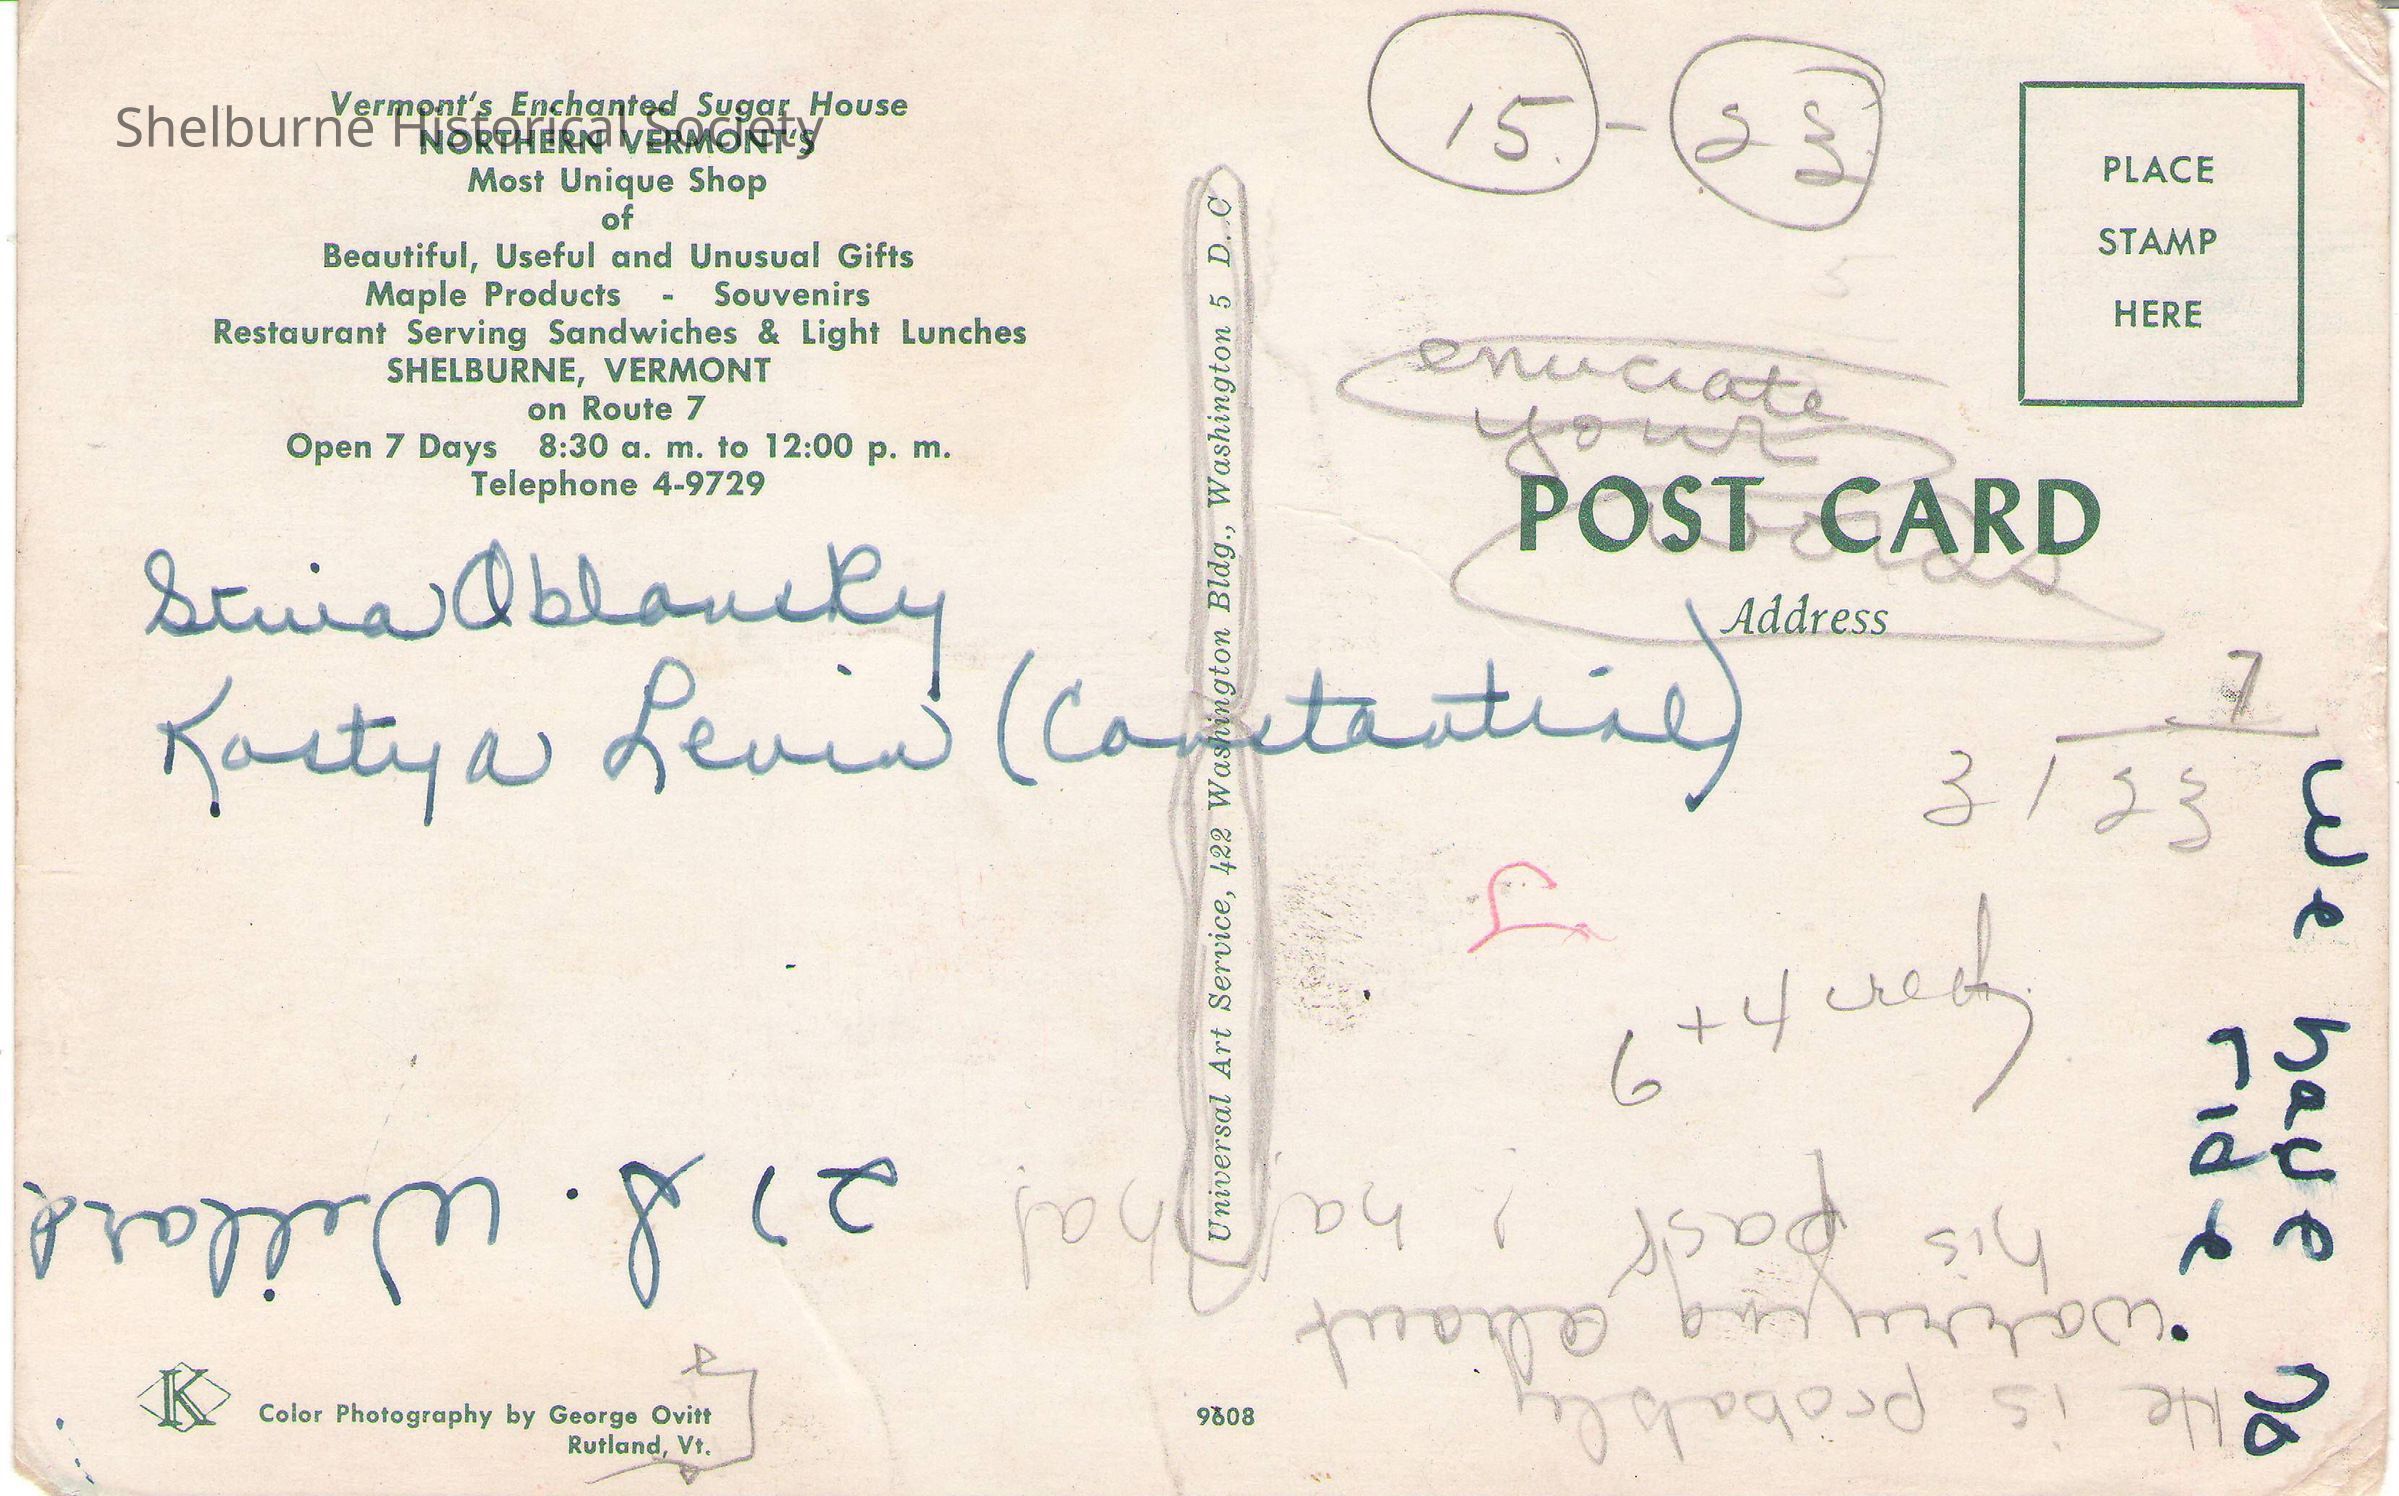 Shelburne Historical Society
Vermont's Enchanted Sugar House
NORTHERN VERMONT'S
Most Unique Shop
of
Beautiful, Useful and Unusual Gifts
Maple Products - Souvenirs
Restaurant Serving Sandwiches & Light Lunches
SHELBURNE, VERMONT
on Route 7
Open 7 Days 8:30 a. m. to 12:00 p. m.
Telephone 4-9729
Stiva Oblonsky
Kostya Levin (Constantine)
2) J. Willard
Color Photography by George Ovitt
Rutland, Vt.
K
9608
Universal Art Service, 422 Washington Bldg., Washington 5 D. C
15 - 23
PLACE
STAMP
HERE
enuciate
your
words
POST CARD
Address
7
3 / 23
9 + 4 red
We have no
ride
He is probably
worrying about
his past, ha! ha!